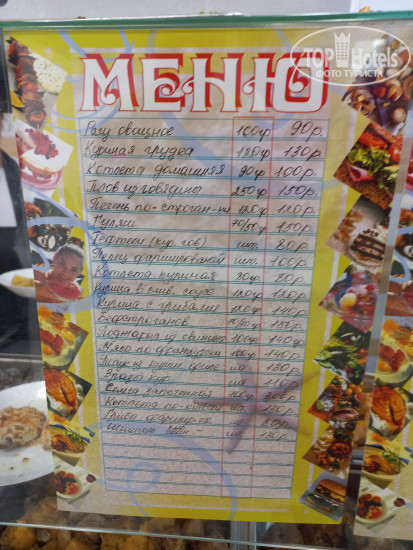 TopHotels
ФОТО ТУРИСТА
МЕНЮ
Рагу овощное 100гр 90р.
Куриная грудка 120гр 130р.
Котлета домашняя 90гр 100р.
Плов из говядины 250гр 150р.
Печень по-строган-ки 120гр 120р.
Гуляш 70/50 150р.
Тефтели (кур. гов) шт. 80р.
Перец фаршированный шт. 100р.
Котлета куриная 80р.
Курица в слив. соусе 120гр 130р.
Курица с грибами 120гр 140р.
Бефстроганов 150р.
Поджарка из свинины 100гр 140р.
Мясо по французски 100гр
кур.
запеченная
Котлета по-киевски шт